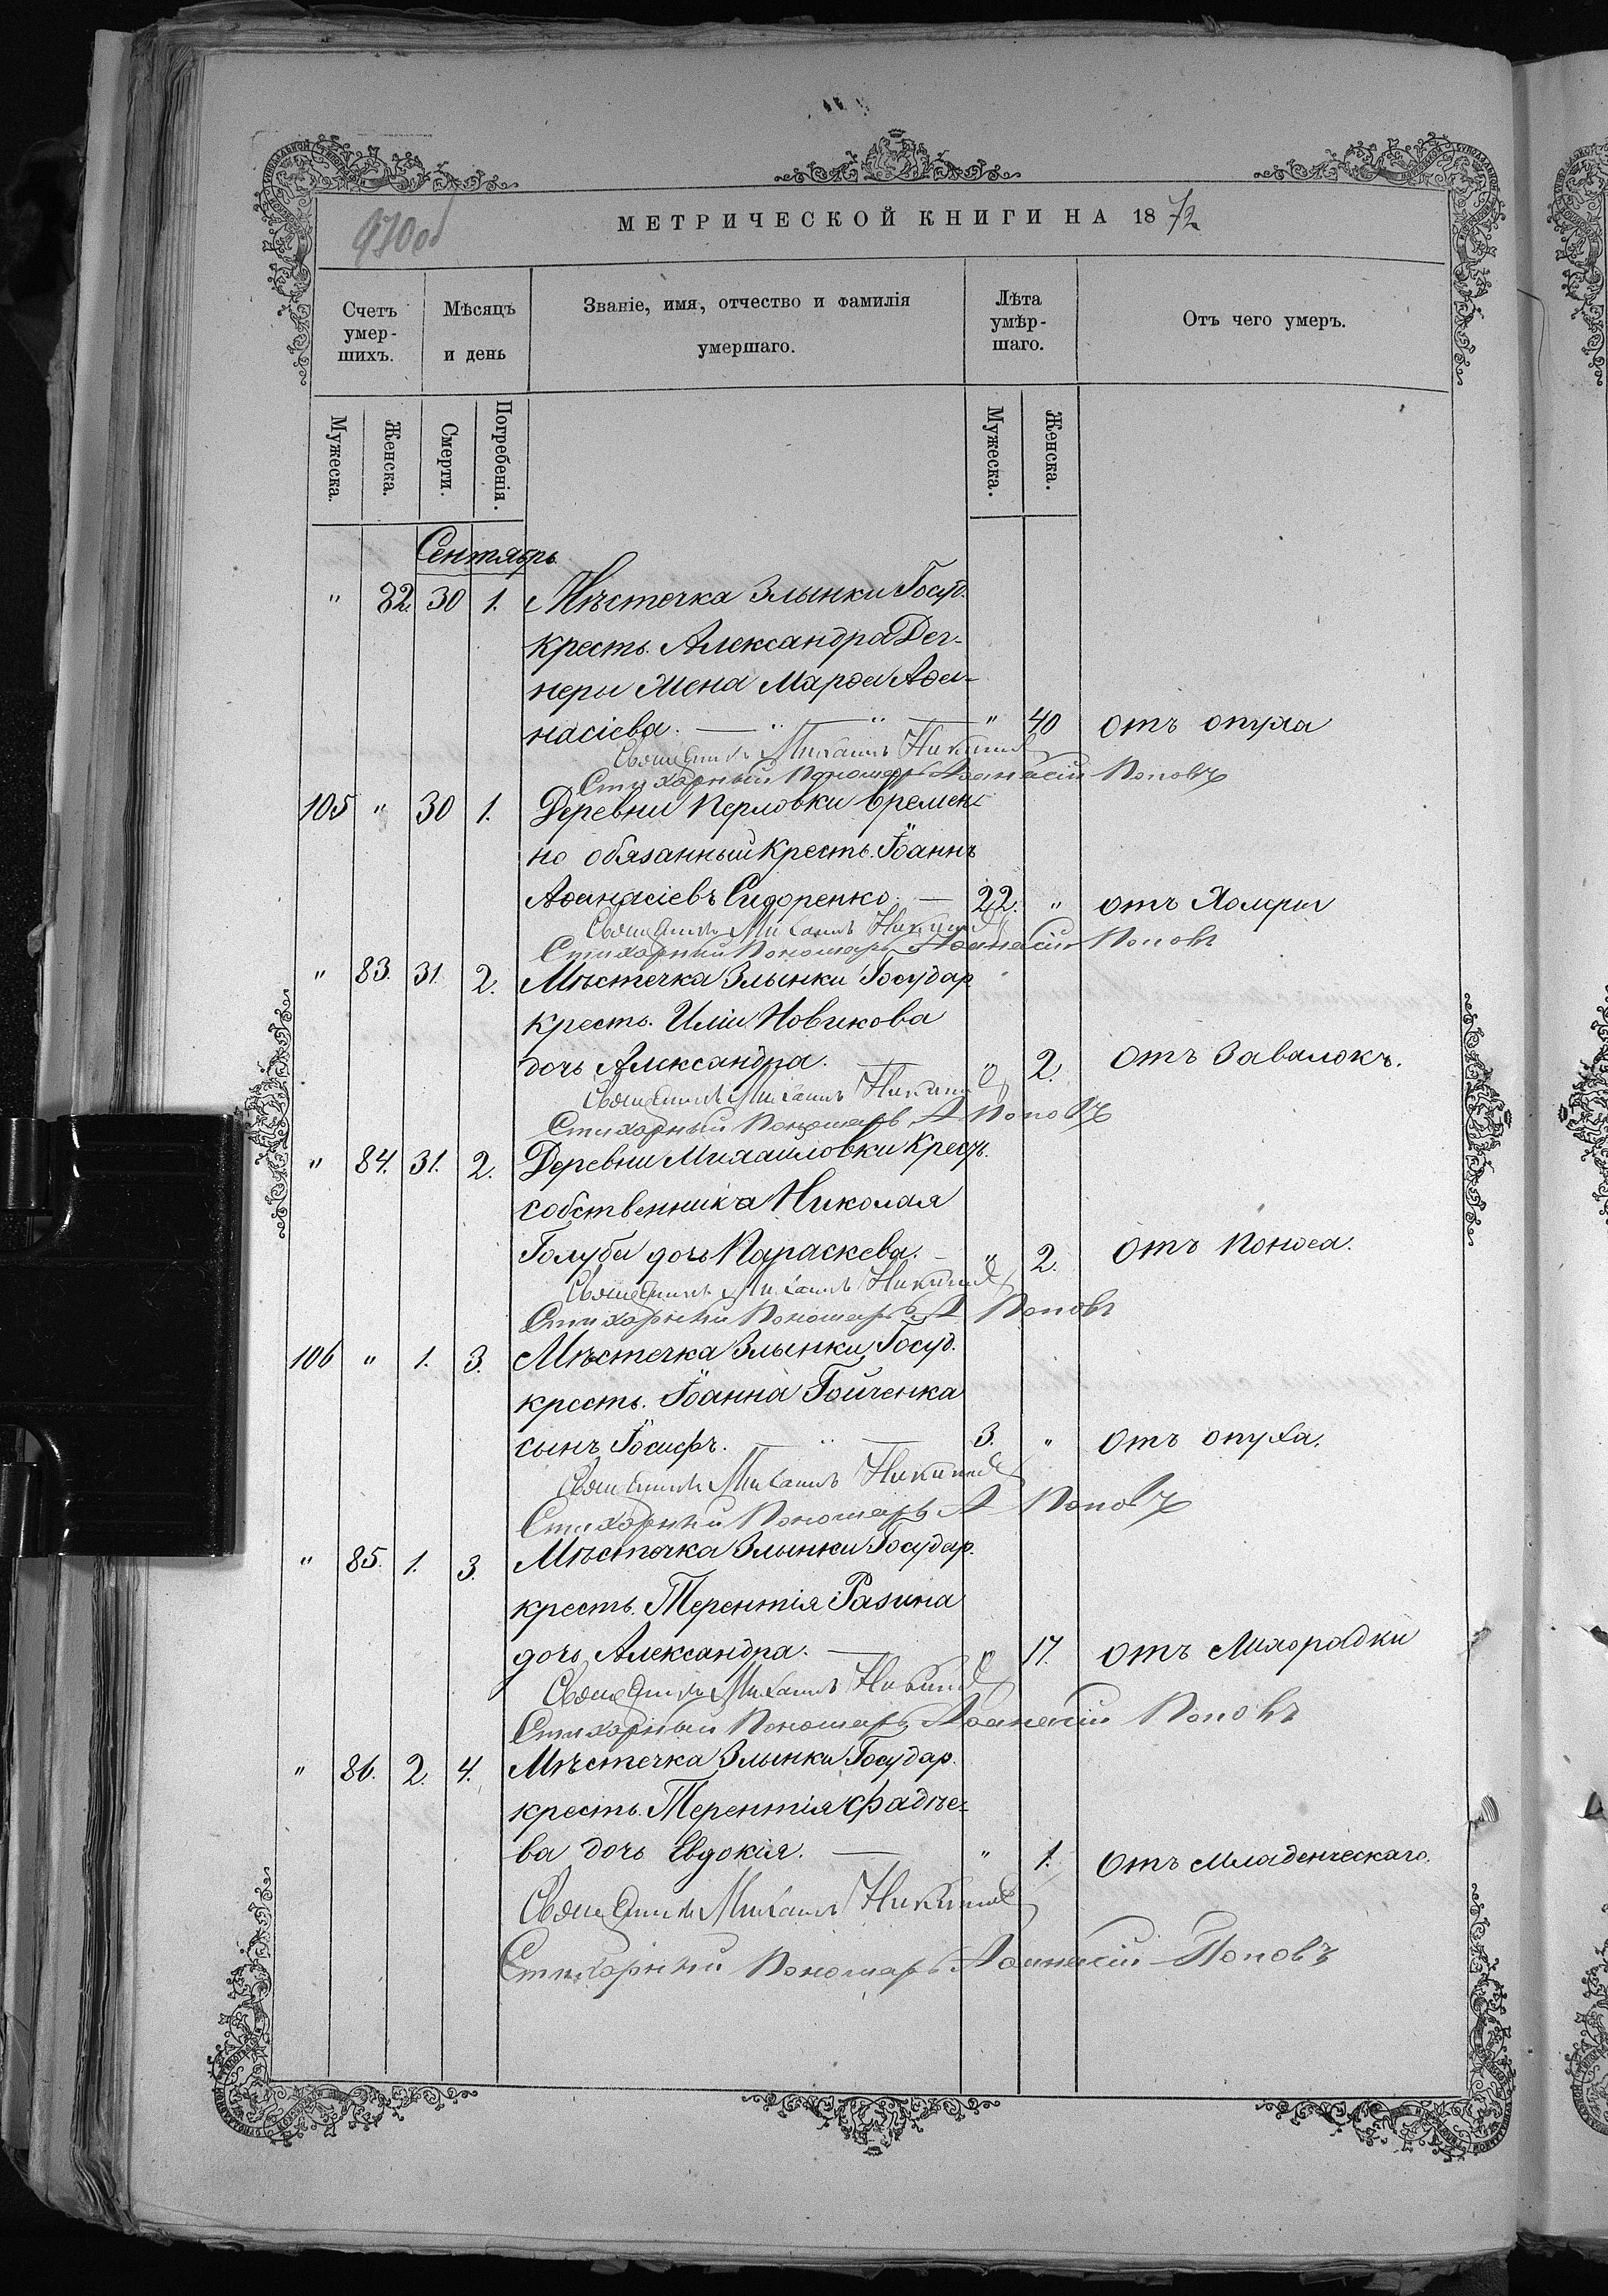 930 об
МЕТРИЧЕСКОЙ КНИГИ НА 1872
Счетъ умер-шихъ.
Мѣсяцъ и день
Званіе, имя, отчество и фамилія умершаго.
Лѣта умѣр-шаго.
Отъ чего умеръ.
Мужеска.
Женска.
Смерти.
Погребенія.
Мужеска.
Женска.
Сентябрь
" 82. 30 1. Мѣстечка Злынки Госуд.
крестъ. Александра Дег-
неры Жена Марѳа Аѳа-
насіева. — " — " 40 отъ опуха
Священникъ Михаилъ Никитинъ
Стихарный Пономарь Аѳанасій Поповъ
105 " 30 1. Деревни Перловки времен-
но обязанный крестъ. Іоаннъ
Аѳанасіевъ Сидоренко. — 22. " отъ Холеры
Священникъ Михаилъ Никитинъ
Стихарный Пономарь Аѳанасій Поповъ
" 83. 31. 2. Мѣстечка Злынки Государ
крестъ. Иліи Новикова
дочь Александра. — " 2. отъ Завалокъ.
Священникъ Михаилъ Никитинъ
Стихарный Пономарь А Поповъ
" 84. 31. 2. Деревни Михайловки крест.
собственника Николая
Голуби дочь Параскева. — " 2. отъ поноса.
Священникъ Михаилъ Никитинъ
Стихарный Пономарь А Поповъ
106 " 1. 3. Мѣстечка Злынки Госуд.
крестъ. Іоанна Гойченка
сынъ Іосифъ. — 3. " отъ опуха.
Священникъ Михаилъ Никитинъ
Стихарный Пономарь А Поповъ
" 85. 1. 3. Мѣстечка Злынки Государ.
крестъ. Терентія Разина
дочь Александра. — " 17. отъ Лихорадки
Священникъ Михаилъ Никитинъ
Стихарный Пономарь Аѳанасій Поповъ
" 86. 2. 4. Мѣстечка Злынки Государ.
крестъ. Терентія Фадѣе-
ва дочь Евдокія. — " 1. отъ младенческаго.
Священникъ Михаилъ Никитинъ
Стихарный Пономарь Аѳанасій Поповъ